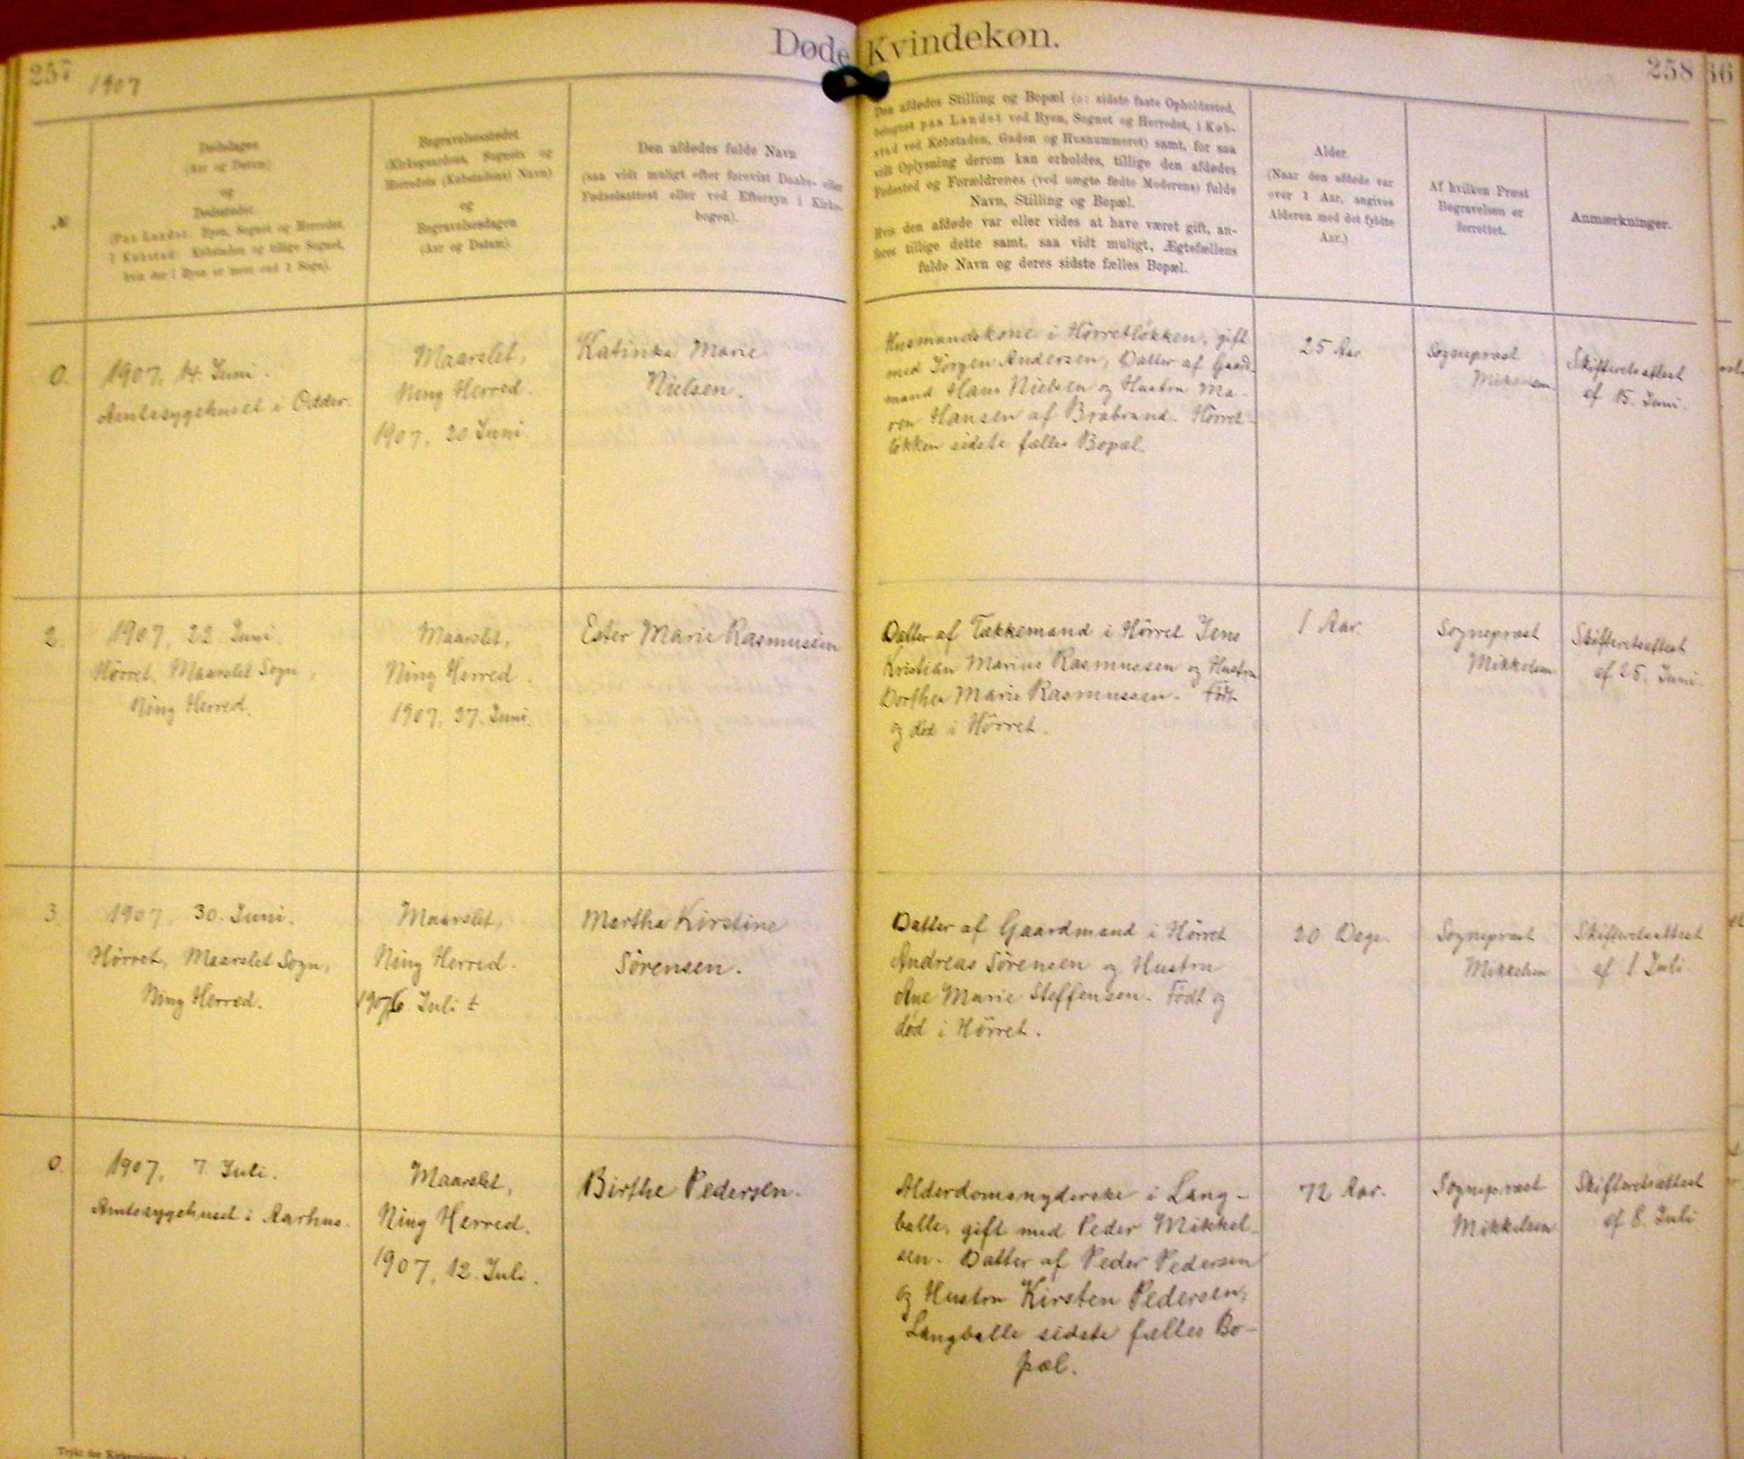 257
1907
Døde Kvindekøn.
258
№
Dødsdagen
(Aar og Datum)
og
Dødsstedet
(Paa Landet: Byen, Sognet og Herredet,
I Købstad: Købstaden og tillige Sognet,
hvis der i Byen er mere end 1 Sogn).
Begravelsesstedet
(Kirkegaardens, Sognets og
Herredets (Købstadens) Navn)
og
Begravelsesdagen
(Aar og Datum)
Den afdødes fulde Navn
(saa vidt muligt efter forevist Daabs- eller
Fødselsattest eller ved Eftersyn i Kirke-
bogen).
Den afdødes Stilling og Bopæl (ɔ: sidste faste Opholdssted,
betegnet paa Landet ved Byen, Sognet og Herredet, i Køb-
stad ved Købstaden, Gaden og Husnummeret) samt, for saa
vidt Oplysning derom kan erholdes, tillige den afdødes
Fødested og Forældrenes (ved uægte fødte Moderens) fulde
Navn, Stilling og Bopæl.
Hvis den afdøde var eller vides at have været gift, an-
føres tillige dette samt, saa vidt muligt, Ægtefællens
fulde Navn og deres sidste fælles Bopæl.
Alder.
(Naar den afdøde var
over 1 Aar, angives
Alderen med det fyldte
Aar.)
Af hvilken Præst
Begravelsen er
forrettet.
Anmærkninger.
0.
1907, 14. Juni.
Amtssygehuset i Odder.
Maarslet,
Ning Herred.
1907, 20 Juni
Katinka Marie
Nielsen.
Husmandskone i Hørretløkken, gift
med Jørgen Andersen, Datter af Gaard-
mand Hans Nielsen og Hustru Ma-
ren Hansen af Brabrand. Hørret-
løkken sidste fælles Bopæl.
25 Aar
Sognepræst
Mikkelsen
Skifteretsattest
af 15. Juni.
2.
1907, 22. Juni
Hørret, Maarslet Sogn,
Ning Herred.
Maarslet,
Ning Herred.
1907, 27. Juni.
Ester Marie Rasmussen
Datter af Tækkemand i Hørret Jens
Kristian Marius Rasmussen og Hustru
Dorthea Marie Rasmussen. Født
og død i Hørret.
1 Aar.
Sognepræst
Mikkelsen
Skifteretsattest
af 25. Juni.
3.
1907, 30. Juni.
Hørret, Maarslet Sogn,
Ning Herred.
Maarslet,
Ning Herred.
1907, 6. Juli
Martha Kirstine
Sørensen.
Datter af Gaardmand i Hørret
Andreas Sørensen og Hustru
Ane Marie Steffensen. Født og
død i Hørret.
20 Dage.
Sognepræst
Mikkelsen
Skifteretsattest
af 1 Juli
0.
1907, 7. Juli.
Amtssygehuset i Aarhus.
Maarslet,
Ning Herred.
1907, 12. Juli.
Birthe Pedersen.
Alderdomsnyderske i Lang-
balle, gift med Peder Mikkel-
sen. Datter af Peder Pedersen
og Hustru Kirsten Pedersen,
Langballe sidste fælles Bo-
pæl.
72 Aar.
Sognepræst
Mikkelsen
Skifteretsattest
af 8. Juli